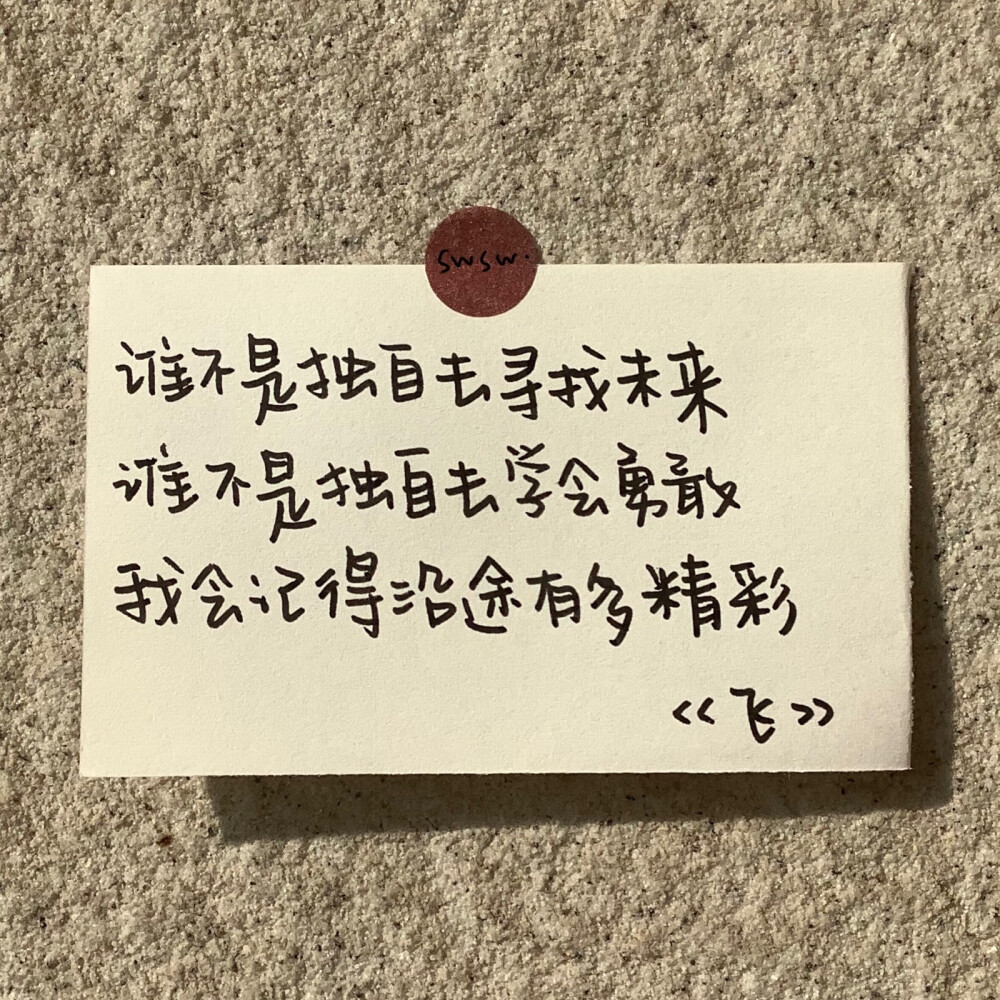 swsw.
谁不是独自去寻找未来
谁不是独自去学会勇敢
我会记得沿途有多精彩
<<飞>>